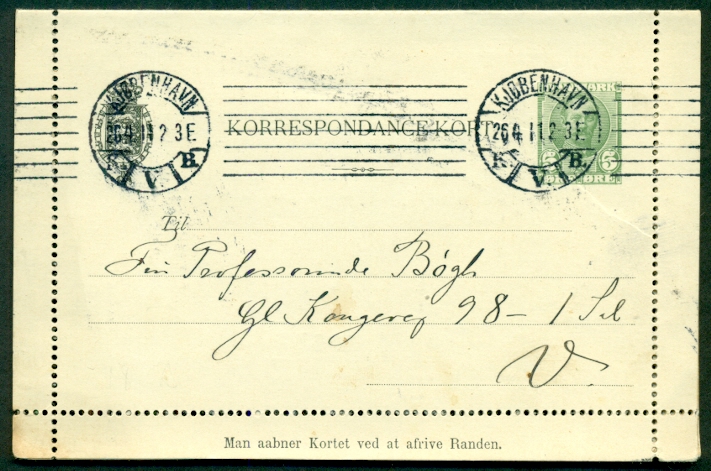 KJØBENHAVN
26.4.11 2-3 E.
K. B.
V. I.
KORRESPONDANCE-KORT
KJØBENHAVN
26.4.11 2-3 E.
K. B.
V. I.
MARK
5 5
ØRE
Til
Fru Professorinde Bøgh
Gl Kongevej 98 – 1 Sal
V.
Man aabner Kortet ved at afrive Randen.